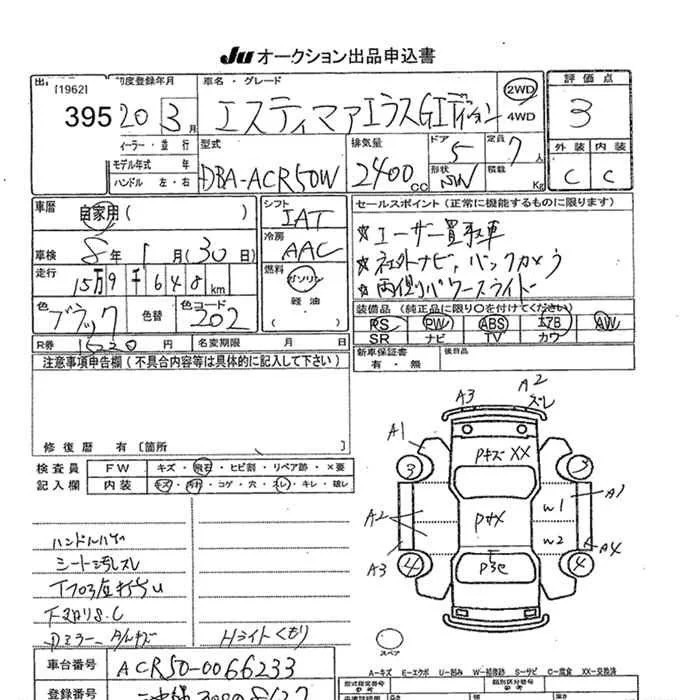 Ju オークション出品申込書
[1962]
395
初度登録年月
20 3 月
車名・グレード
エスティマアエラスGエディション
2WD
4WD
評価点
3
ィーラー・並行
モデル年式 年
ハンドル 左・右
型式
DBA-ACR50W
排気量
2400 cc
ドア
5
定員
7 人
形状
SW
積載
Kg
外装 内装
C C
車歴
自家用 ( )
車検
8 年 1 月 (30 日)
走行
15万9千648 km
色
ブラック
色替
色コード
202
シフト
IAT
冷房
AAC
燃料
ガソリン
軽油
( )
セールスポイント (正常に機能するものに限ります)
☆ユーザー買取車
☆社外ナビ、バックカメラ
☆両側パワースライド
装備品 (純正品に限り○を付けてください)
PS PW ABS エアB AW
SR ナビ TV カワ
R券 16220 円
名変期限 月 日
新車保証書
有・無
後日品
注意事項申告欄 (不具合内容等は具体的に記入して下さい)
修復暦 有 [箇所 ]
検査員
記入欄
FW キズ・飛石・ヒビ割・リペア跡・×要
内装 キズ・汚れ・コゲ・穴・スレ・キレ・破レ
ハンドルハゲ
シート汚レスレ
下廻りS.C
Dミラー
Hライトくもり
A3
A2
ズレ
A1
PキズXX
3
3
A2
Pキメ
W1
A1
W2
A3
4
4
A4
スペア
A-キズ E-エクボ U-凹み W-補修跡 S-サビ C-腐食 XX-交換済
車台番号
ACR50-0066233
登録番号
型式指定番号
類別区分番号